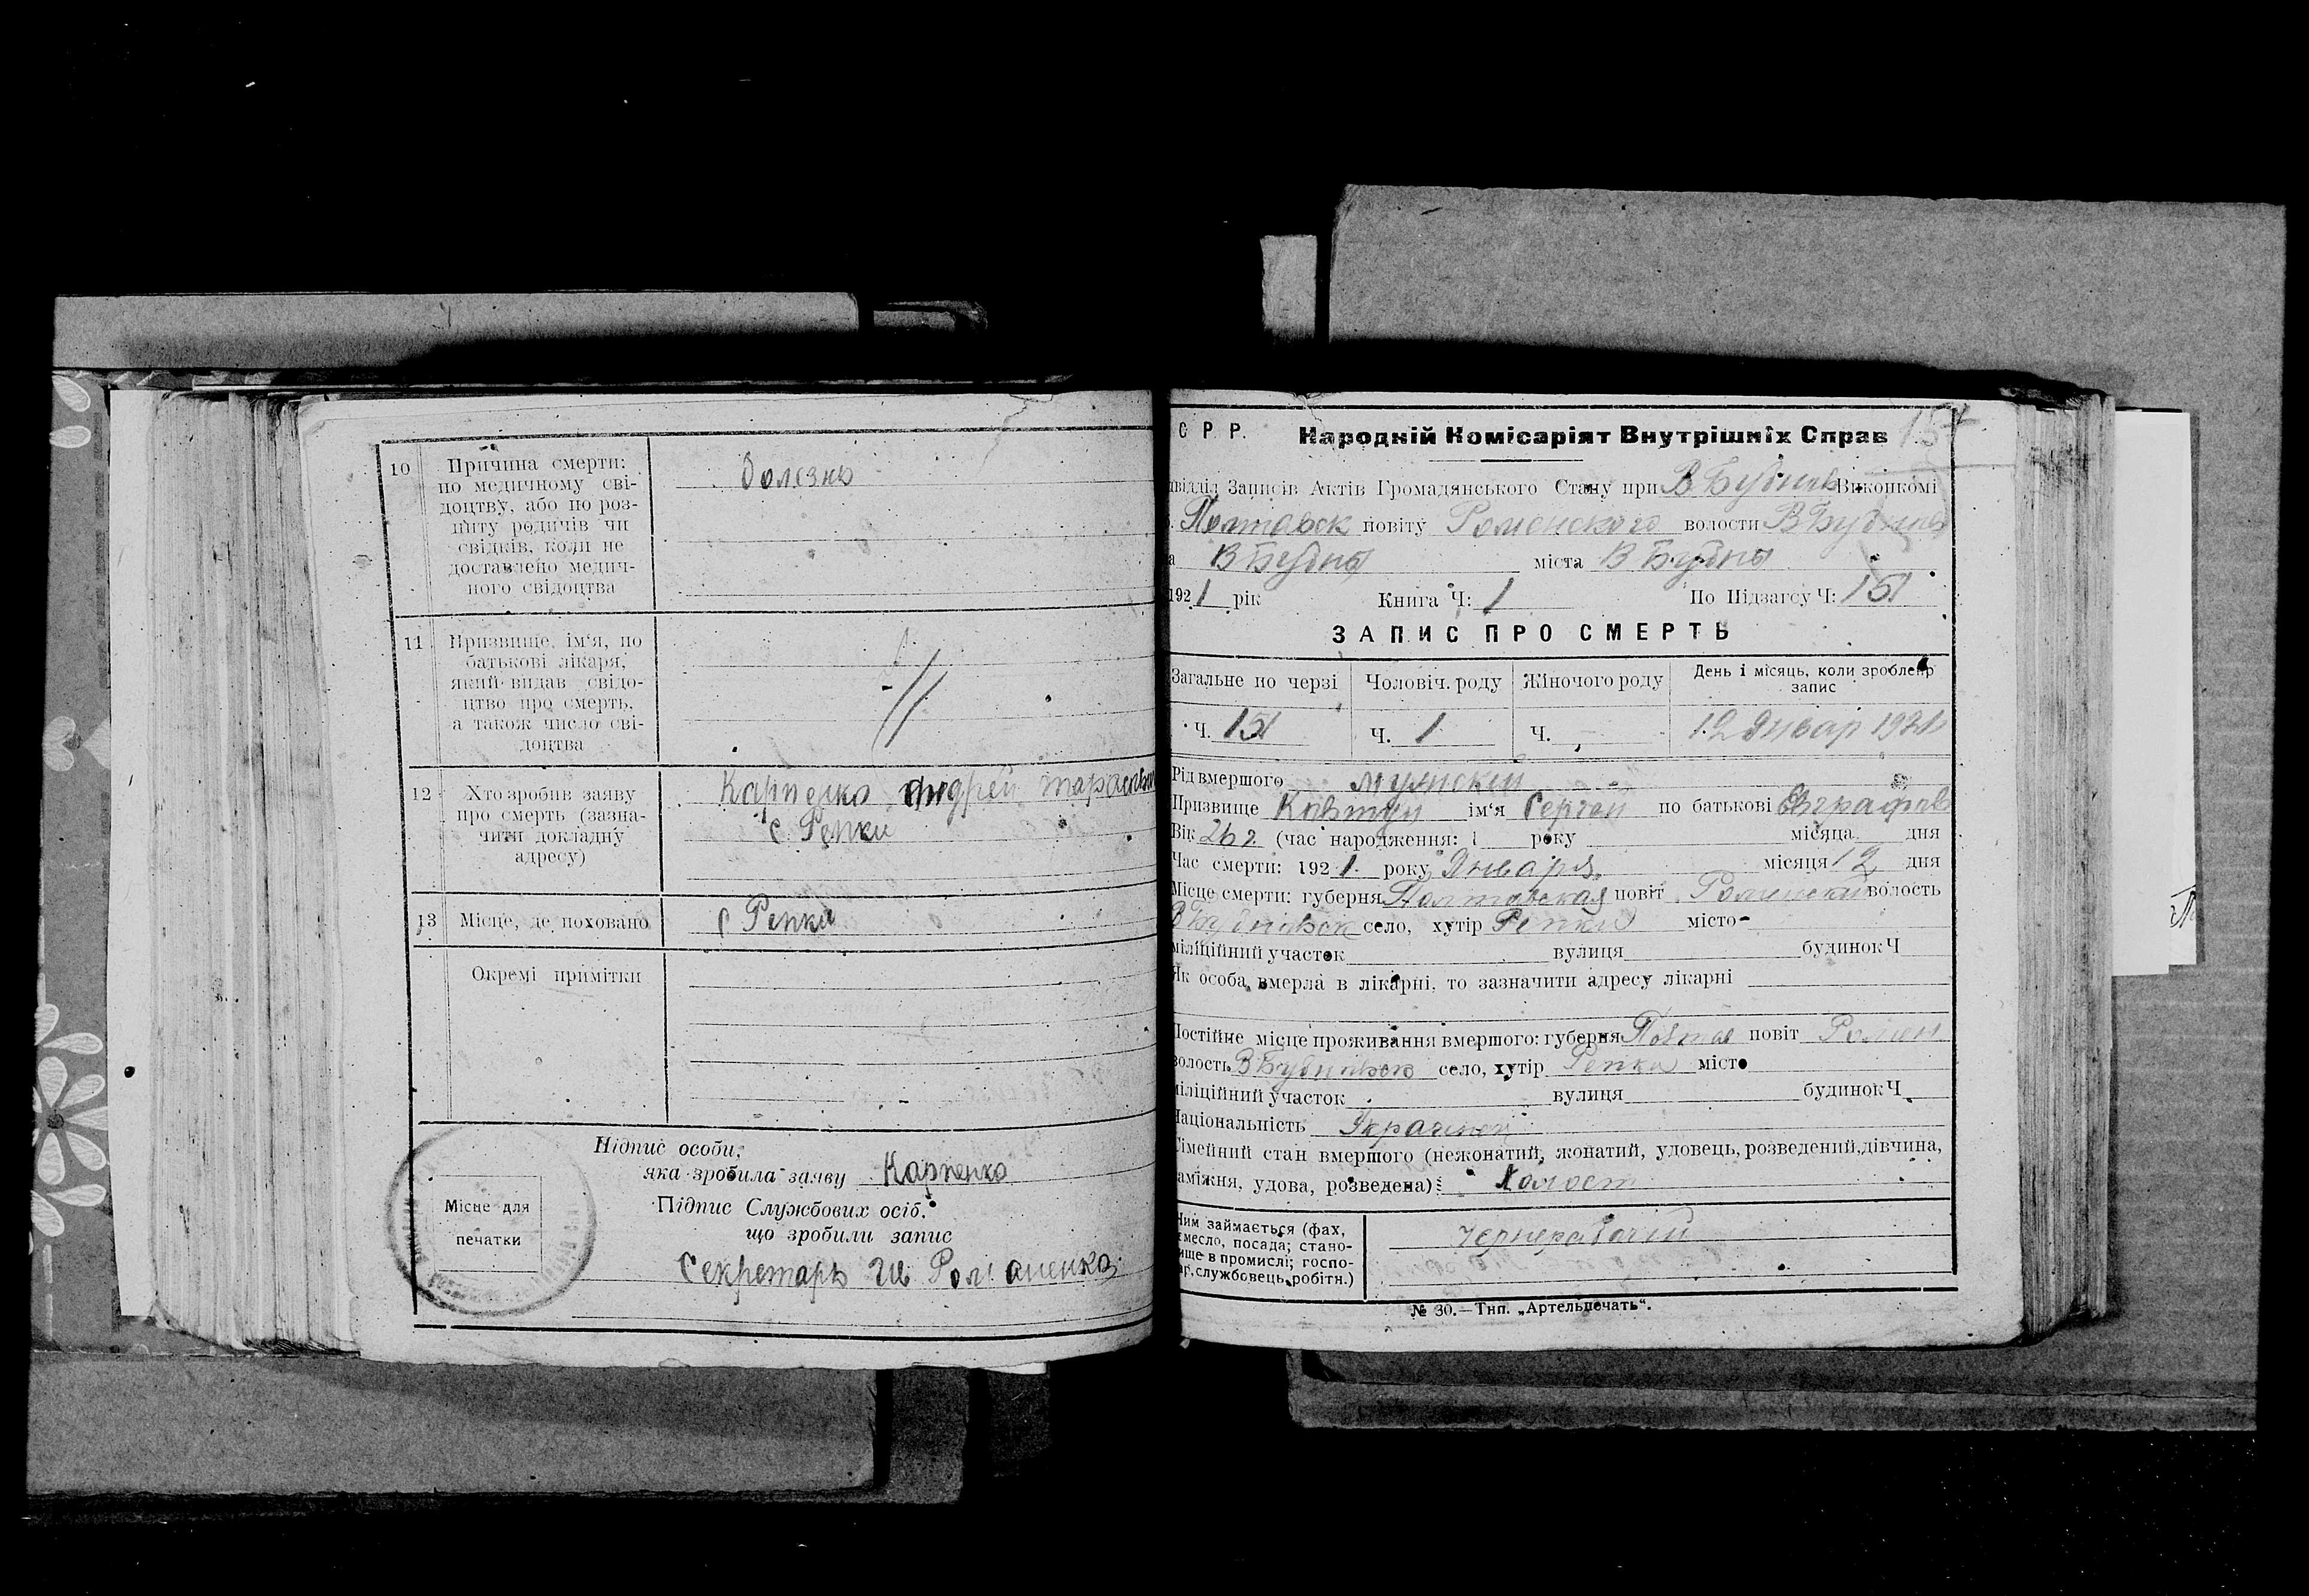 10
Причина смерти:
по медичному сві-
доцтву, або по роз-
питу родичів чи
свідків, коли не
доставлено медич-
ного свідоцтва
Болезнь
11
Призвище, ім'я, по
батькові лікаря,
який видав свідо-
цтво про смерть,
а також число сві-
доцтва
12
Хто зробив заяву
про смерть (зазна-
чити докладну
адресу)
Карпенко Андрей
с. Репки
13
Місце, де поховано
с Репки
Окремі примітки
Підпис особи,
яка зробила заяву Карпенко
Підпис Службових осіб,
що зробили запис
Місце для
печатки
Секретарь Романенко
С Р Р. Народній Комісаріят Внутрішніх Справ 157
Записів Актів Громадянського Стану при Виконкомі
Полтавск повіту Роменского волости
В Будны міста В Будны
1921 рік Книга Ч: 1 По Підзагсу Ч: 151
ЗАПИС ПРО СМЕРТЬ
Загальне по черзі Чоловіч. роду Жіночого роду День і місяць, коли зроблено запис
Ч. 151 Ч. 1 Ч. - 12 Январ 1921
Рід вмершого мужской
Призвище Ковтун ім'я Сергей по батькові Евграфов
Вік 26 г. (час народження: 1 року місяца дня
Час смерти: 1921. року Января місяця 12 дня
Місце смерти: губерня Полтавская повіт Роменский волость
село, хутір Репки місто -
міліційний участок вулиця будинок Ч
Як особа вмерла в лікарні, то зазначити адресу лікарні
Постійне місце проживання вмершого: губерня Полтав повіт Ромен
волость село, хутір Репки місто
міліційний участок вулиця будинок Ч
Національність Украинец
Сімейний стан вмершого (нежонатий, жонатий, удовець, розведений, дівчина,
заміжня, удова, розведена): Холост
Чим займається (фах,
ремесло, посада; стано-
вище в промислі; госпо-
дар, службовець, робітн.)
Чернерабочий
№ 30.—Тип. „Артельпечать".